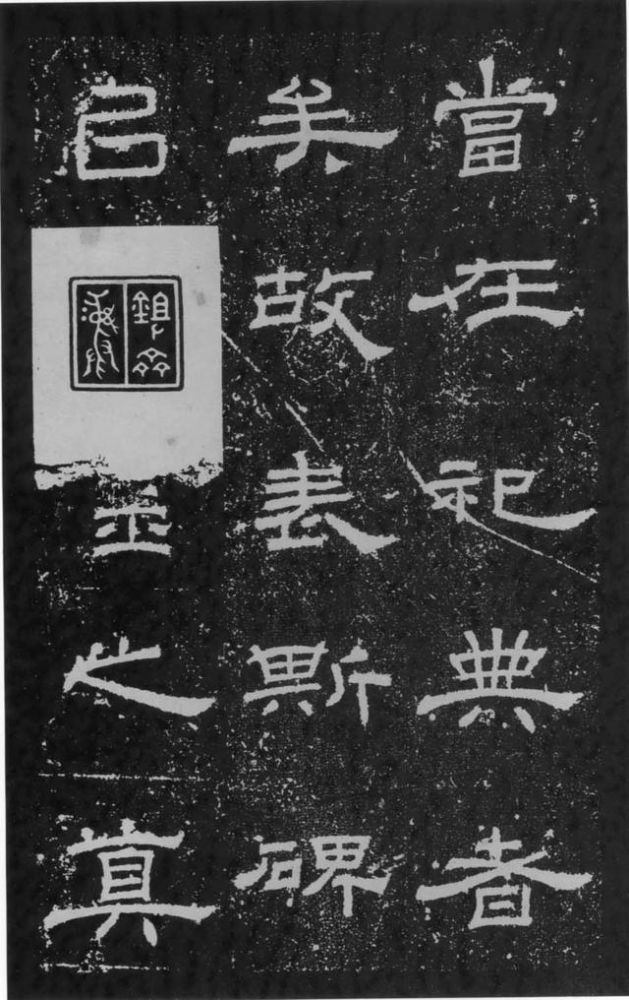 當在祀典者
矣故表斯碑
㠯
之真